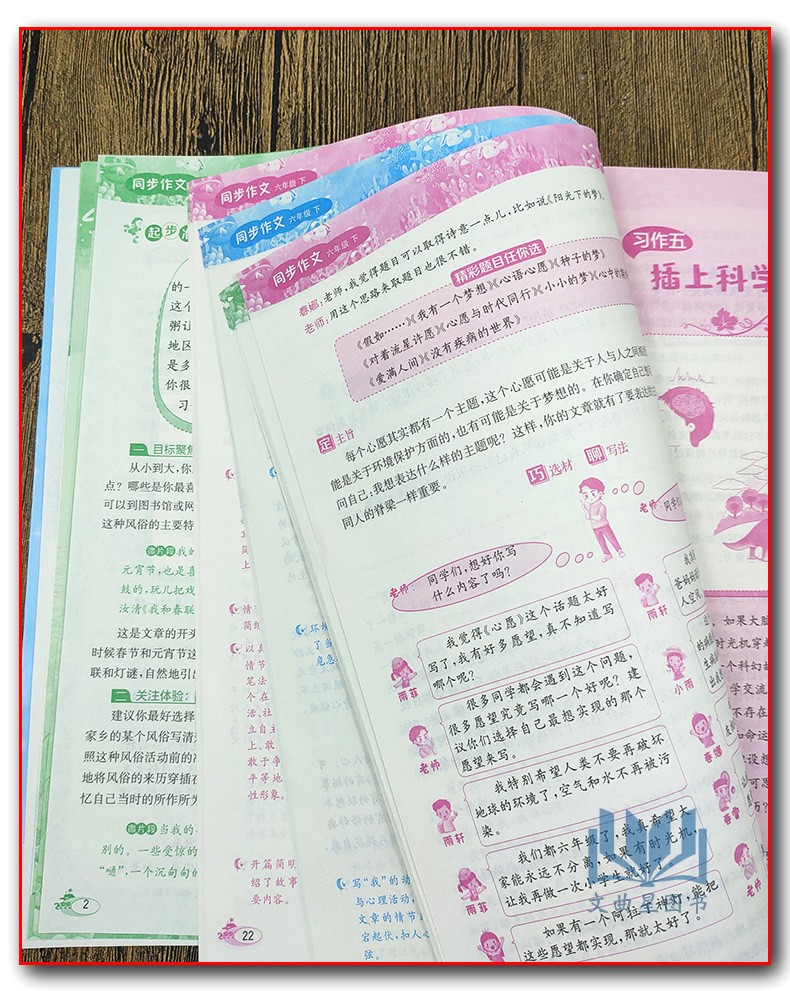 同步作文 六年级 下
同步作文
起步
的一
这个
粥让
地区
是多
你很
习
一 目标聚焦
从小到大，你
点？哪些是你最喜
可以到图书馆或网
这种风俗的主要特
微片段 我的
元宵节，也是喜
鼓的，玩儿把戏
汝清《我和春联
这是文章的开头
时候春节和元宵节这
联和灯谜，自然地引出
二 关注体验：
建议你最好选择
家乡的某个风俗写清
照这种风俗活动前的
地将风俗的来历穿插在
忆自己当时的所作所为
微片段 当我的
别的。一些受惊的
“嗵”，一个沉甸甸的
2
同步作文 六年级 下
情
简
以真
情节
笔法
个在
活、社
立自主
上、敢
敢于争
平等地
性形象。
开篇简明
绍了故事
要内容。
22
环境
了当
危急
写“我”的动
与心理活动，
文章的情节
宕起伏，扣人心
弦。
同步作文 六年级 下
春蕾：老师，我觉得题目可以取得诗意一点儿，比如说《阳光下的梦》。
老师：用这个思路来取题目也很不错。
精彩题目任你选
《假如……》《我有一个梦想》《心语心愿》《种子的梦》
《对着流星许愿》《心愿与时代同行》《小小的梦》《心中的
《爱满人间》《没有疾病的世界》
定 主旨
每个心愿其实都有一个主题，这个心愿可能是关于人与人之间
能是关于环境保护方面的，也有可能是关于梦想的。在你确定自己想写
问自己：我想表达什么样的主题呢？这样，你的文章就有了要表达的
同人的脊梁一样重要。
巧 选材 聊 写法
老师：同学们，想好你写
什么内容了吗？
我觉得《心愿》这个话题太好
写了，我有好多愿望，真不知道写
哪个呢？
雨菲
很多同学都会遇到这个问题，
很多愿望究竟写哪一个好呢？建
议你们选择自己最想实现的那个
愿望来写。
老师
我特别希望人类不要再破坏
地球的环境了，空气和水不再被污
染。
雨轩
我们都六年级了，我真希望大
家能永远不分离，如果有时光机，
让我再做一次小学生就好了。
雨菲
如果有一个阿拉丁神灯，能把
这些愿望都实现，那就太好了！
老师：同学
雨轩
爸妈
人空
小雨
春蕾
老师
习作五
插上科学
如果大脑
时光机穿
个科幻故
学交流
不存在
文曲星图书